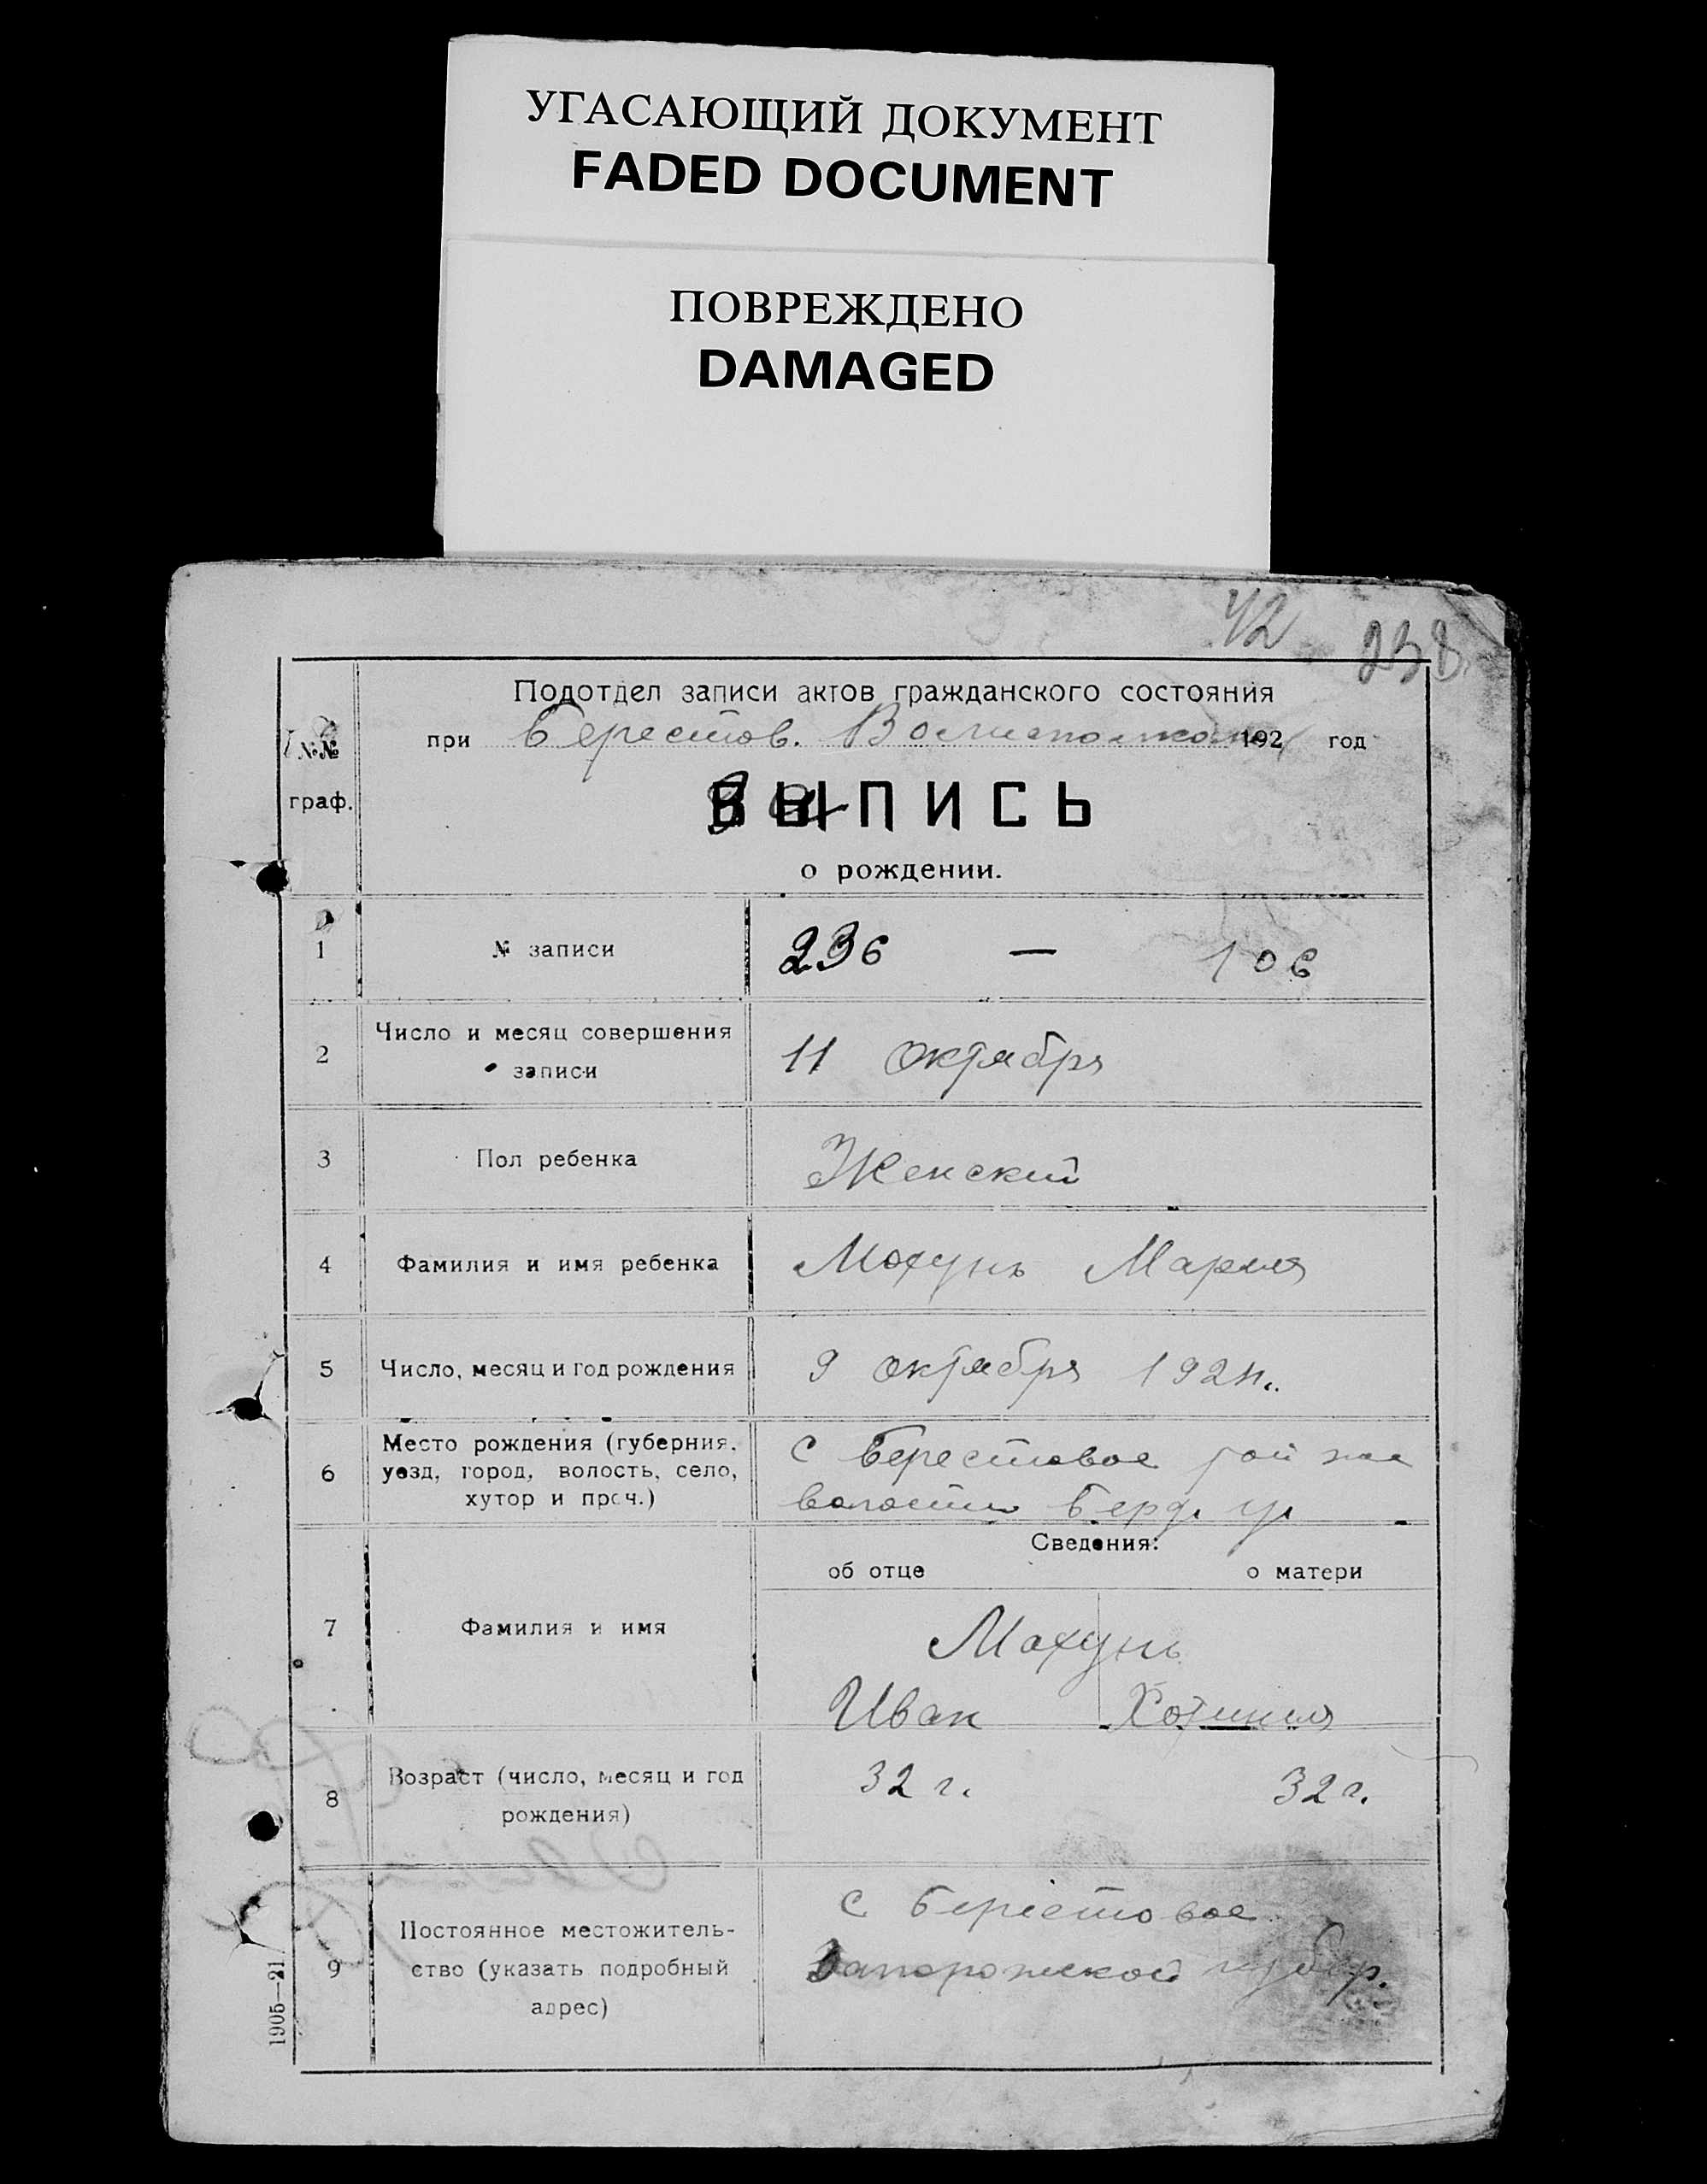 УГАСАЮЩИЙ ДОКУМЕНТ
FADED DOCUMENT
ПОВРЕЖДЕНО
DAMAGED
42 238
Подотдел записи актов гражданского состояния
при Берестов. 192 год
№№
граф.
ВЫПИСЬ
о рождении.
1 № записи 236 — 106
2 Число и месяц совершения
записи 11 Октября
3 Пол ребенка Женский
4 Фамилия и имя ребенка Махунь Мария
5 Число, месяц и год рождения 9 Октября 192
6 Место рождения (губерния,
уезд, город, волость, село,
хутор и проч.)
с Берестовое
волости Берд. у.
Сведения:
об отце о матери
7 Фамилия и имя
Махунь
Иван Хотиния
8 Возраст (число, месяц и год
рождения)
32 г. 32 г.
9 Постоянное местожитель-
ство (указать подробный
адрес)
с Берестовое
Запорожской губер.
1905—21